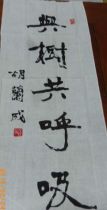 與樹共呼吸
胡蘭成